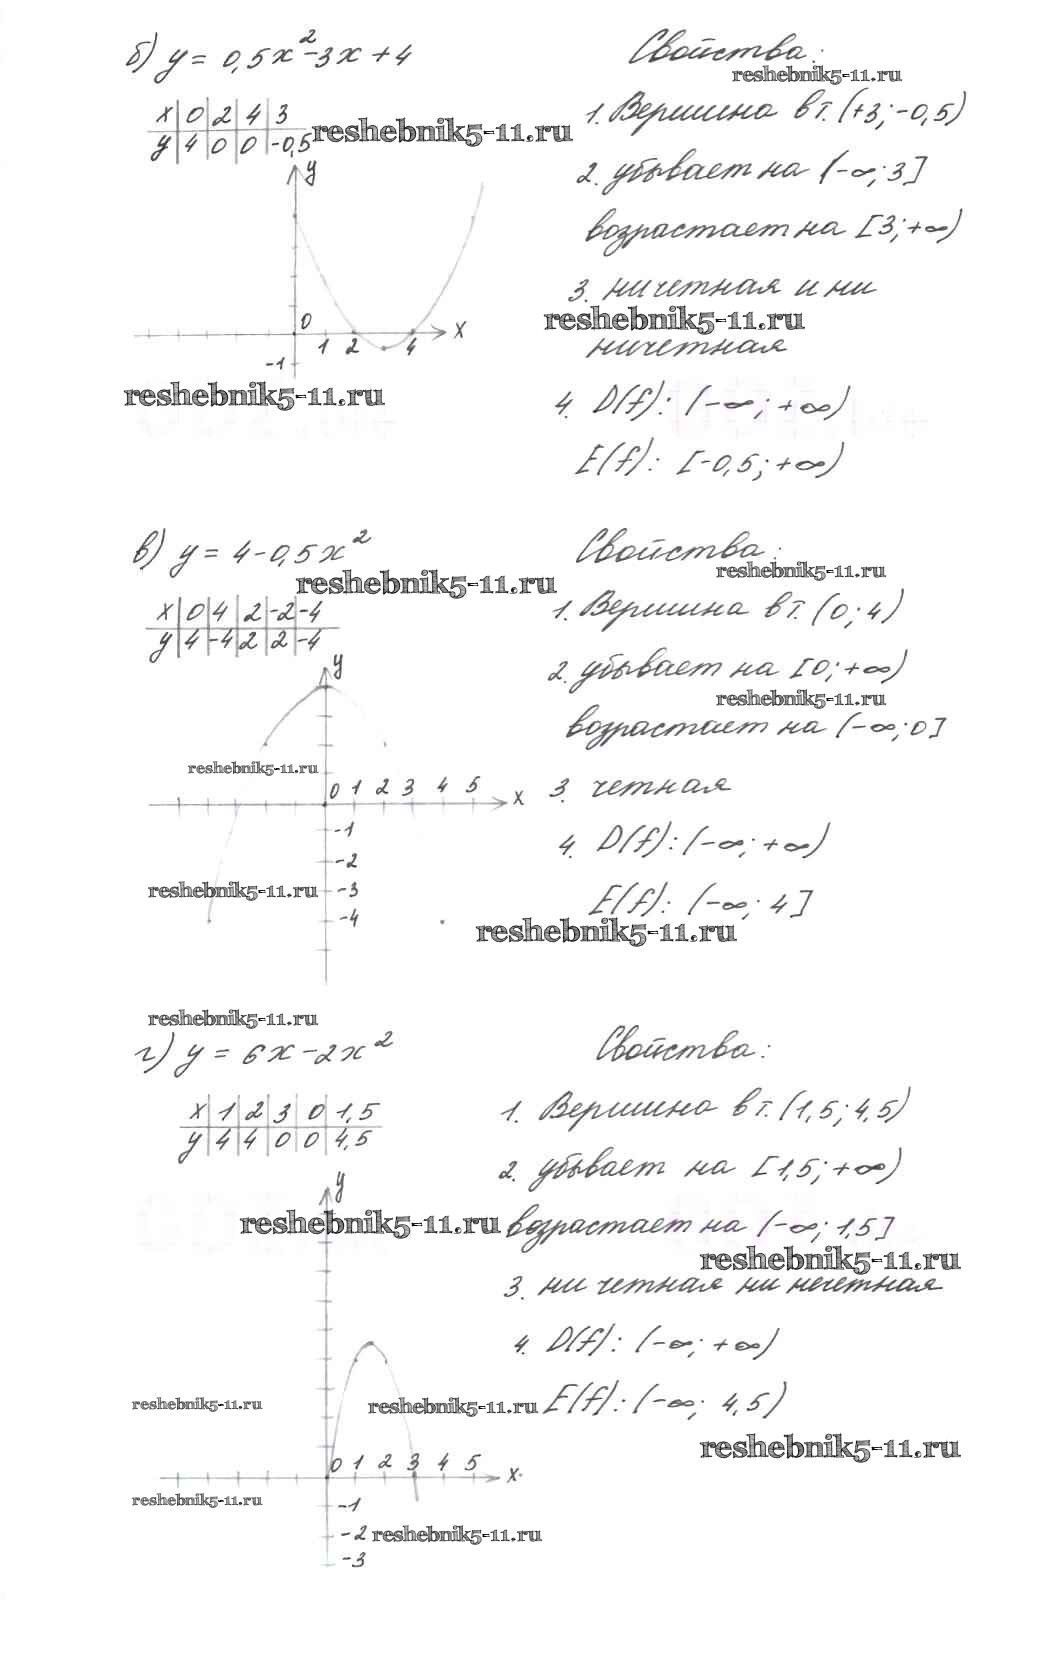 б) y = 0,5x²-3x+4
Свойства:
reshebnik5-11.ru
x|0|2|4|3
y|4|0|0|-0,5
reshebnik5-11.ru
1. Вершина в т. (+3; -0,5)
2. убывает на (-∞; 3]
возрастает на [3; +∞)
3. ни четная и ни
reshebnik5-11.ru
ничетная
y
0
1 2 4 x
-1
reshebnik5-11.ru
4. D(f): (-∞; +∞)
E(f): [-0,5; +∞)
в) y = 4-0,5x²
Свойства:
reshebnik5-11.ru
reshebnik5-11.ru
x|0|4|2|-2|-4
y|4|-4|2|2|-4
1. Вершина в т. (0; 4)
2. убывает на [0; +∞)
reshebnik5-11.ru
возрастает на (-∞; 0]
3. четная
4. D(f): (-∞; +∞)
E(f): (-∞; 4]
reshebnik5-11.ru
y
reshebnik5-11.ru
0 1 2 3 4 5 x
-1
-2
reshebnik5-11.ru
-3
-4
reshebnik5-11.ru
г) y = 6x-2x²
Свойства:
x|1|2|3|0|1,5
y|4|4|0|0|4,5
1. Вершина в т. (1,5; 4,5)
2. убывает на [1,5; +∞)
reshebnik5-11.ru
возрастает на (-∞; 1,5]
reshebnik5-11.ru
3. ни четная ни нечетная
4. D(f): (-∞; +∞)
E(f): (-∞; 4,5)
reshebnik5-11.ru
y
reshebnik5-11.ru
reshebnik5-11.ru
0 1 2 3 4 5 x
reshebnik5-11.ru
-1
-2
reshebnik5-11.ru
-3